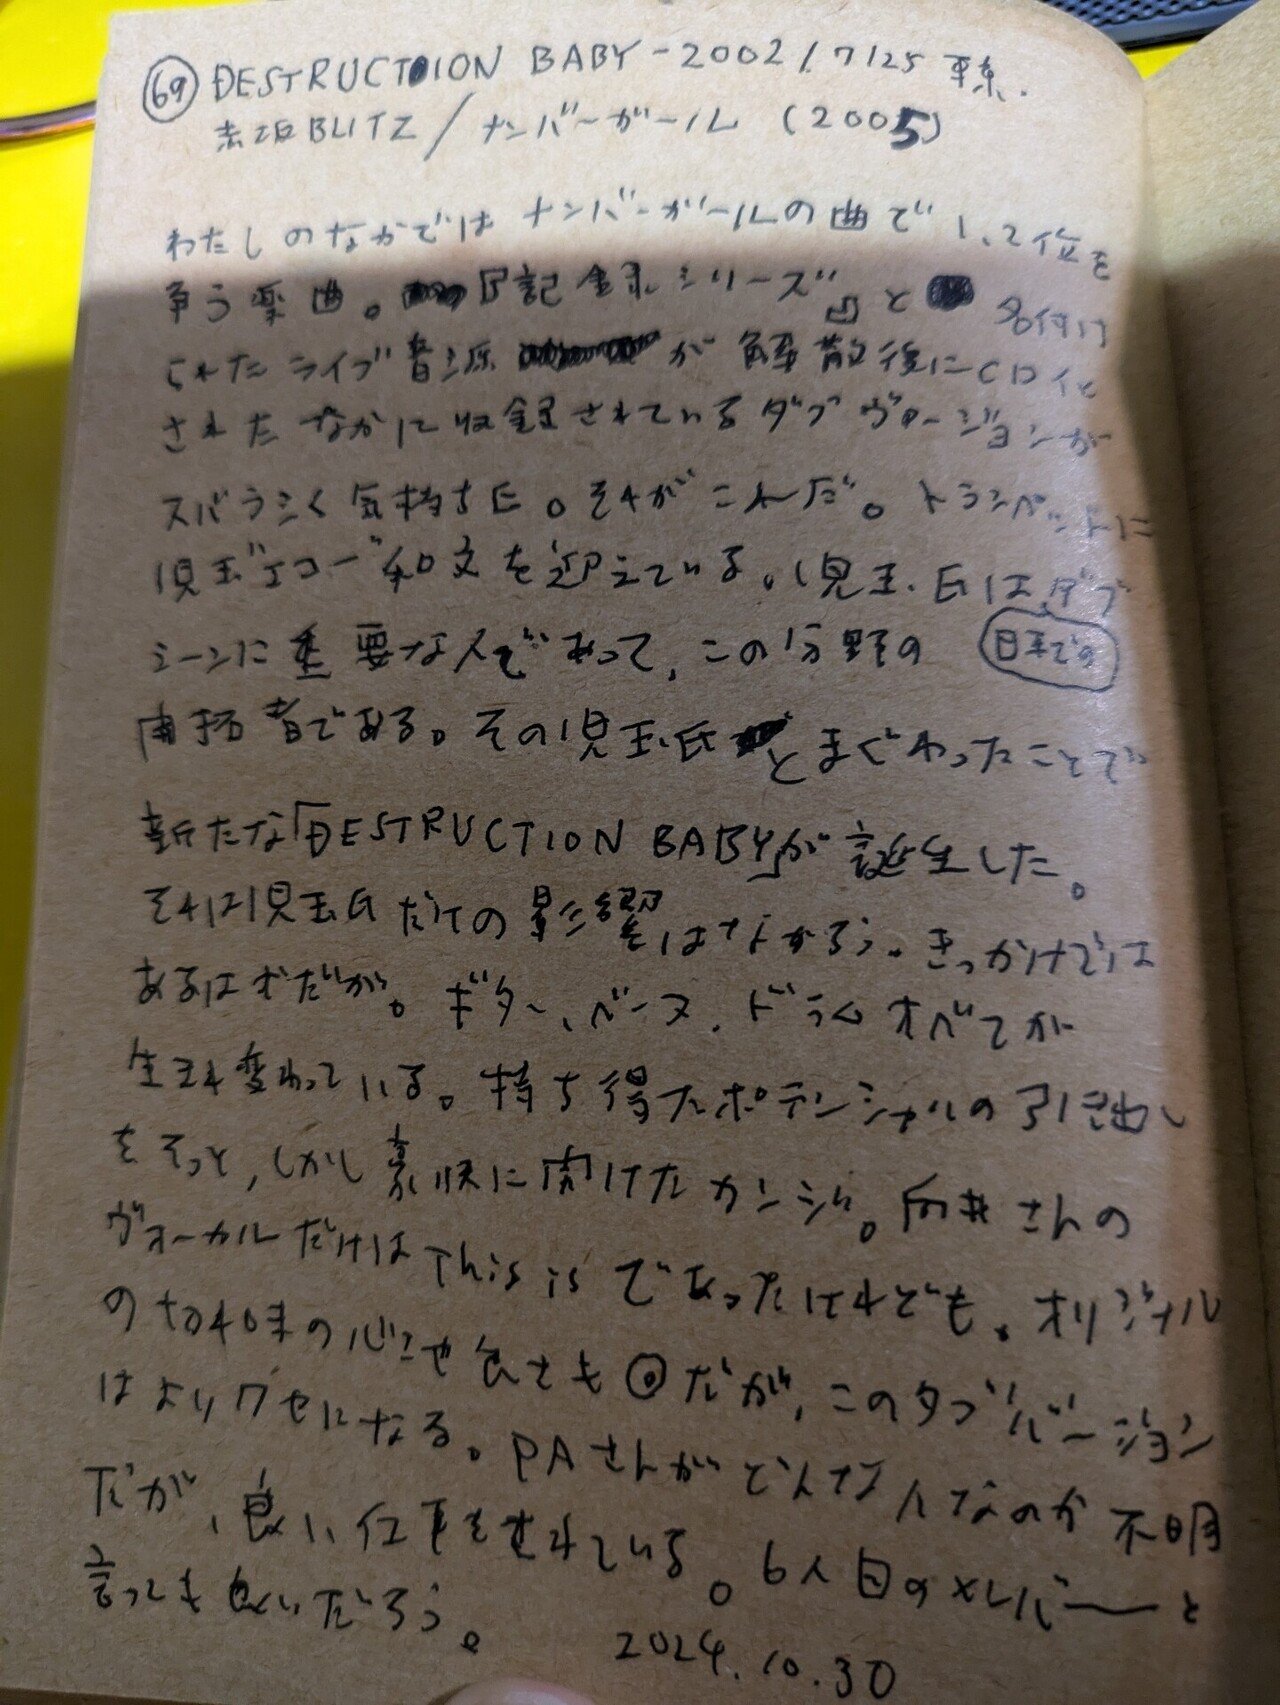 69 DESTRUCTION BABY - 2002/7/25 東京.
赤坂BLITZ / ナンバーガール (2005)
わたしのなかではナンバーガールの曲で1、2位を
争う楽曲。『記録シリーズ』と名付け
られたライブ音源が解散後にCD化
されたなかに収録されているダブヴァージョンが
スバラシく気持ちE。それがこれだ。トランペットに
児玉"エコー"和文を迎えている。児玉氏はダブ
シーンに重要な人であって、この分野の 日本での
開拓者である。その児玉氏とまぐわったことで
新たな「DESTRUCTION BABY」が誕生した。
それは児玉氏だけの影響ではなかろう。きっかけでは
あるはずだが。ギター、ベース、ドラムすべてが
生まれ変わっている。持ち得たポテンシャルの引き出し
をそっと、しかし豪快に開けたカンジ。向井さんの
ヴォーカルだけはThis isであったけれども。オリジナル
の切れ味の心地良さも◎だが、このダブバージョン
はよりクセになる。PAさんがどんな人なのか不明
だが、良い仕事をされている。6人目のメンバーと
言っても良いだろう。
2024.10.30